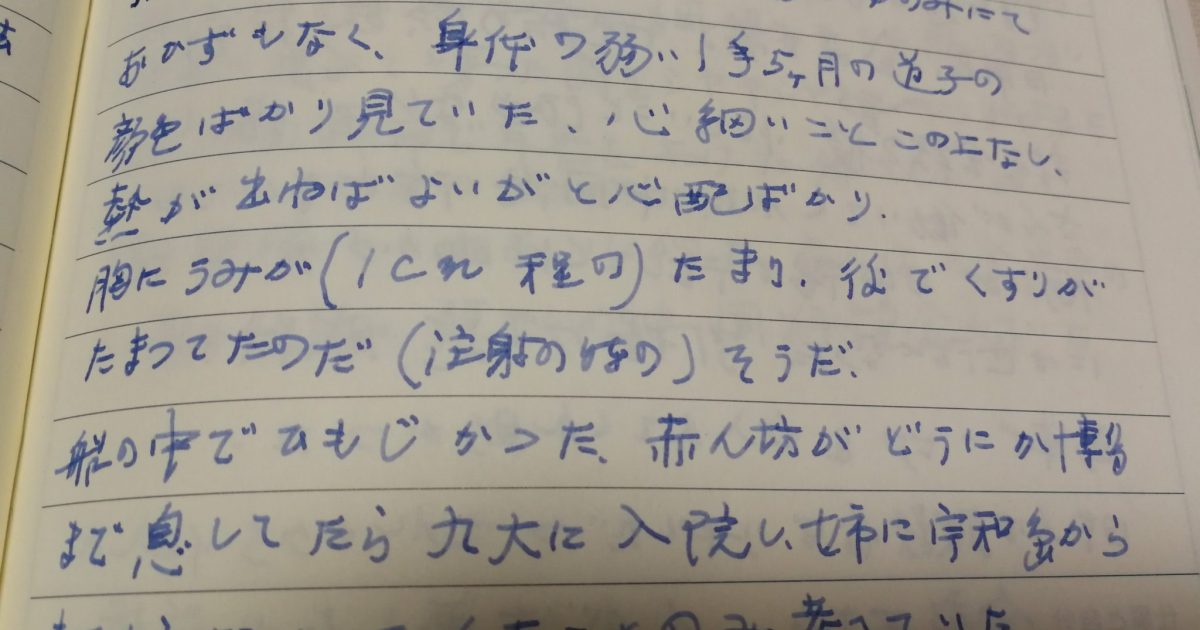 のみにて
おかずもなく、身体の弱い1年5ヶ月の道子の
顔色ばかり見ていた、心細いことこの上なし、
熱が出ねばよいがと心配ばかり.
胸にうみが(1cm程の)たまり、後でくすりが
たまってたのだ(注射の時の)そうだ、
船の中でひもじかった、赤ん坊がどうにか博多
まで息してたら九大に入院し、姉に宇和島から